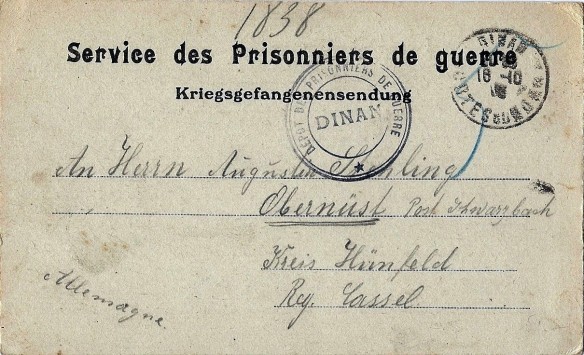 1838
Service des Prisonniers de guerre
Kriegsgefangenensendung
DÉPOT DES PRISONNIERS DE GUERRE
DINAN
DINAN
16-10
COTES DU NORD
An Herrn Augustin
Obernüst Post Schwarzbach
Kreis Hünfeld
Reg. Cassel
Allemagne